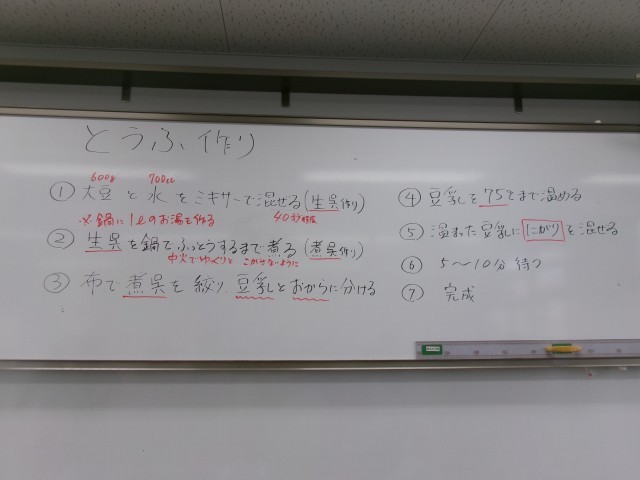 とうふ作り
600g 700cc
① 大豆と水をミキサーで混ぜる(生呉作り)
※鍋に1ℓのお湯を作る 40秒程度
② 生呉を鍋でふっとうするまで煮る(煮呉作り)
中火でゆっくりと こがせないように
③ 布で煮呉を絞り、豆乳とおからに分ける
④ 豆乳を75℃まで温める
⑤ 温めた豆乳に(にがり)を混ぜる
⑥ 5〜10分待つ
⑦ 完成